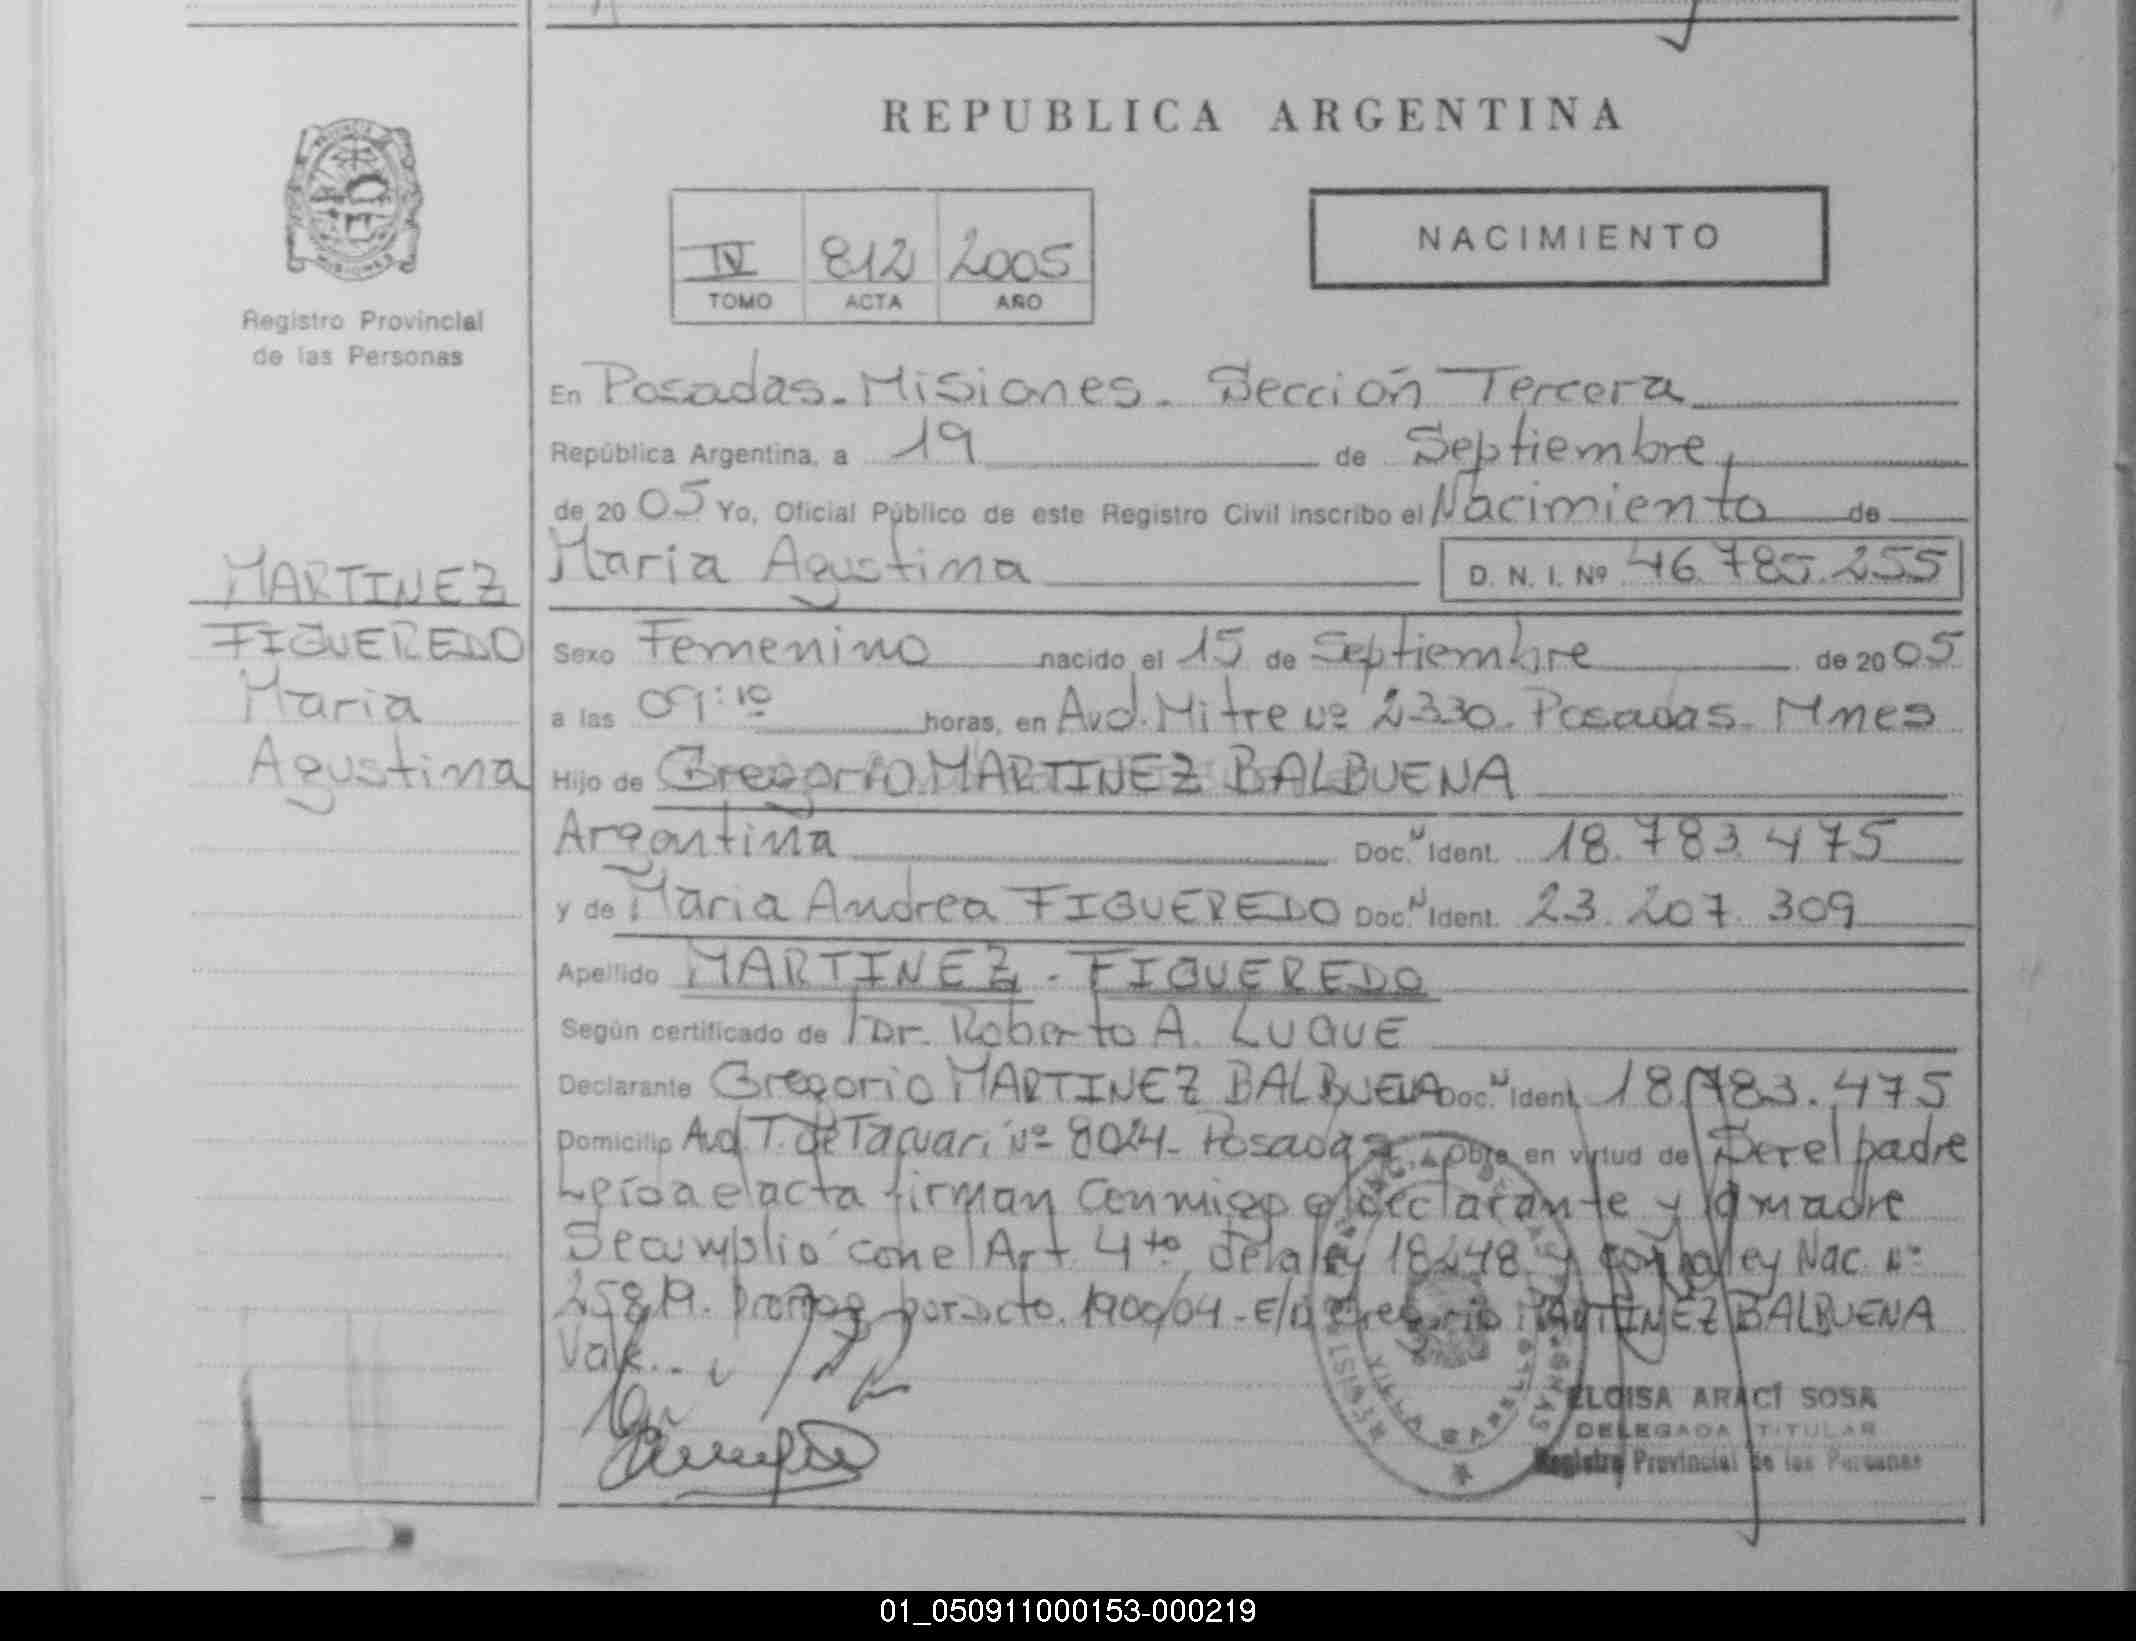 REPUBLICA ARGENTINA
NACIMIENTO
IV 812 2005
TOMO ACTA AÑO
PROVINCIA
MISIONES
Registro Provincial
de las Personas
En Posadas - Misiones - Sección Tercera
República Argentina, a 19 de Septiembre
de 2005 Yo, Oficial Público de este Registro Civil inscribo el Nacimiento de
Maria Agustina D. N. I. Nº 46.785.255
MARTINEZ
FIGUEREDO
Maria
Agustina
Sexo Femenino nacido el 15 de Septiembre de 2005
a las 09:10 horas, en Avd. Mitre Nº 2330. Posadas - Mnes
Hijo de Gregorio MARTINEZ BALBUENA
Argentina Doc. N Ident. 18.783.475
y de Maria Andrea FIGUEREDO Doc. N Ident. 23.207.309
Apellido MARTINEZ - FIGUEREDO
Según certificado de Dr. Roberto A. LUQUE
Declarante Gregorio MARTINEZ BALBUENA Doc. N Ident. 18.783.475
Domicilio Avd. T. de Tacuari Nº 8024 - Posadas. Obra en virtud de Ser el padre
Leida el acta firman conmigo el declarante y la madre
Se cumplió con el Art 4to de la ley 18248 y con la ley Nac. Nº
25819. prorrog por Dcto. 1900/04 - E/l Gregorio MARTINEZ BALBUENA
Vale.
VILLA CABELLO
ELOISA ARACI SOSA
DELEGADA TITULAR
Registro Provincial de las Personas
01_050911000153-000219